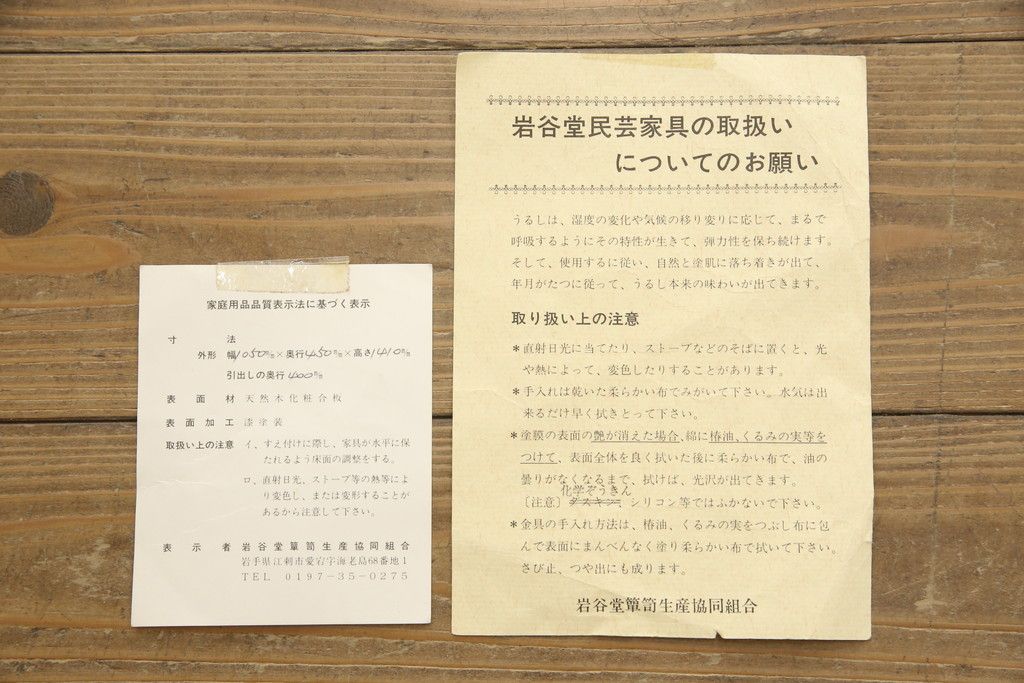 家庭用品品質表示法に基づく表示
寸 法
外形 幅1050㎜×奥行450㎜×高さ1410㎜
引出しの奥行400㎜
表面材 天然木化粧合板
表面加工 漆塗装
取扱い上の注意 イ、すえ付けに際し、家具が水平に保
たれるよう床面の調整をする。
ロ、直射日光、ストーブ等の熱等によ
り変色し、または変形することが
あるから注意して下さい。
表示者 岩谷堂簞笥生産協同組合
岩手県江刺市愛宕字海老島68番地1
TEL 0197-35-0275
岩谷堂民芸家具の取扱い
についてのお願い
うるしは、湿度の変化や気候の移り変りに応じて、まるで
呼吸するようにその特性が生きて、弾力性を保ち続けます。
そして、使用するに従い、自然と塗肌に落ち着きが出て、
年月がたつに従って、うるし本来の味わいが出てきます。
取り扱い上の注意
*直射日光に当てたり、ストーブなどのそばに置くと、光
や熱によって、変色したりすることがあります。
*手入れは乾いた柔らかい布でみがいて下さい。水気は出
来るだけ早く拭きとって下さい。
*塗膜の表面の艶が消えた場合、綿に椿油、くるみの実等を
つけて、表面全体を良く拭いた後に柔らかい布で、油の
曇りがなくなるまで、拭けば、光沢が出てきます。
化学ぞうきん
〔注意〕ダスキン、シリコン等ではふかないで下さい。
*金具の手入れ方法は、椿油、くるみの実をつぶし布に包
んで表面にまんべんなく塗り柔らかい布で拭いて下さい。
さび止、つや出にも成ります。
岩谷堂簞笥生産協同組合